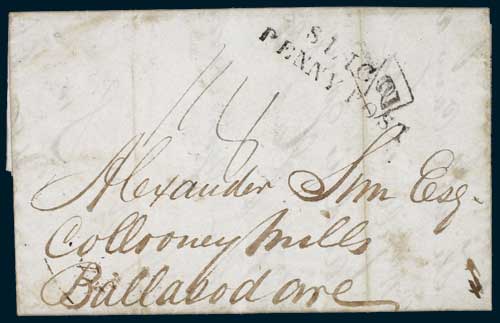 SLIGO
PENNY POST
Alexander Sim Esq.
Collooney Mills
Ballasodare